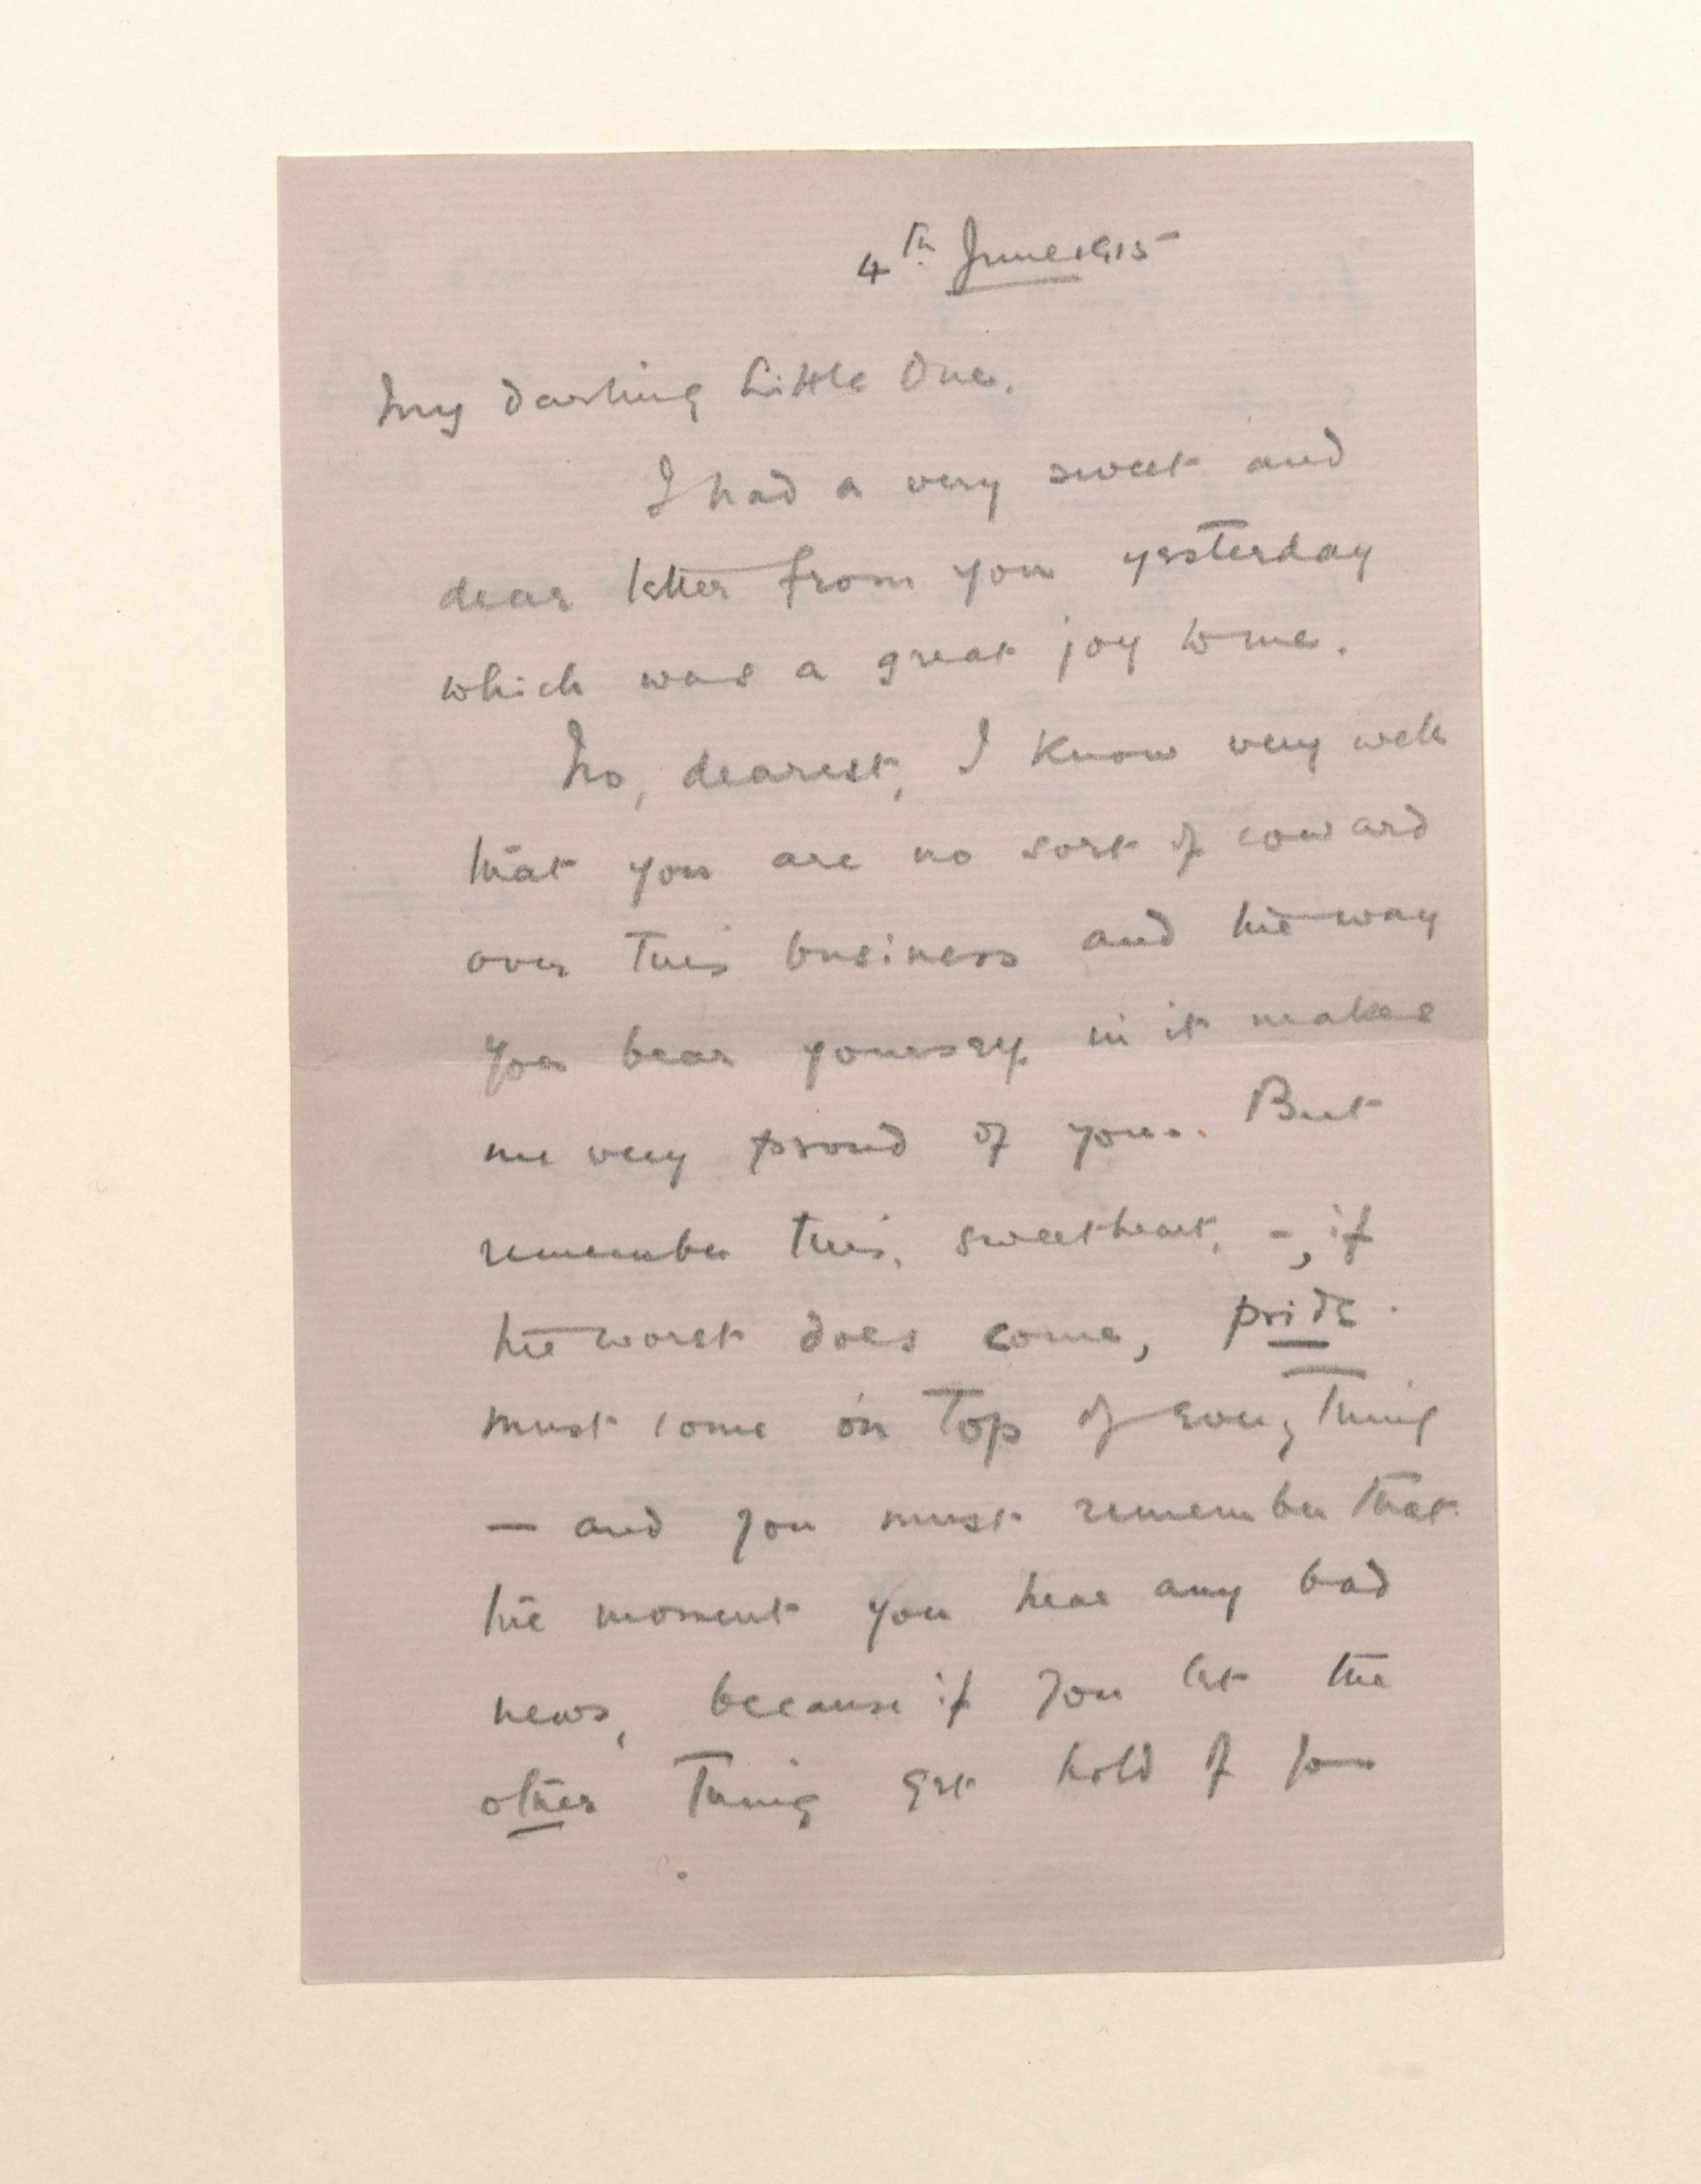 4th June 1915
My darling Little One.
I had a very sweet and
dear letter from you yesterday
which was a great joy to me.
No, dearest, I know very well
that you are no sort of coward
over this business and the way
you bear yourself in it makes
me very proud of you. But
remember this, sweetheart, -, if
the worst does come, pride
must come on top of everything
— and you must remember that
the moment you hear any bad
news, because if you let the
other thing get hold of you